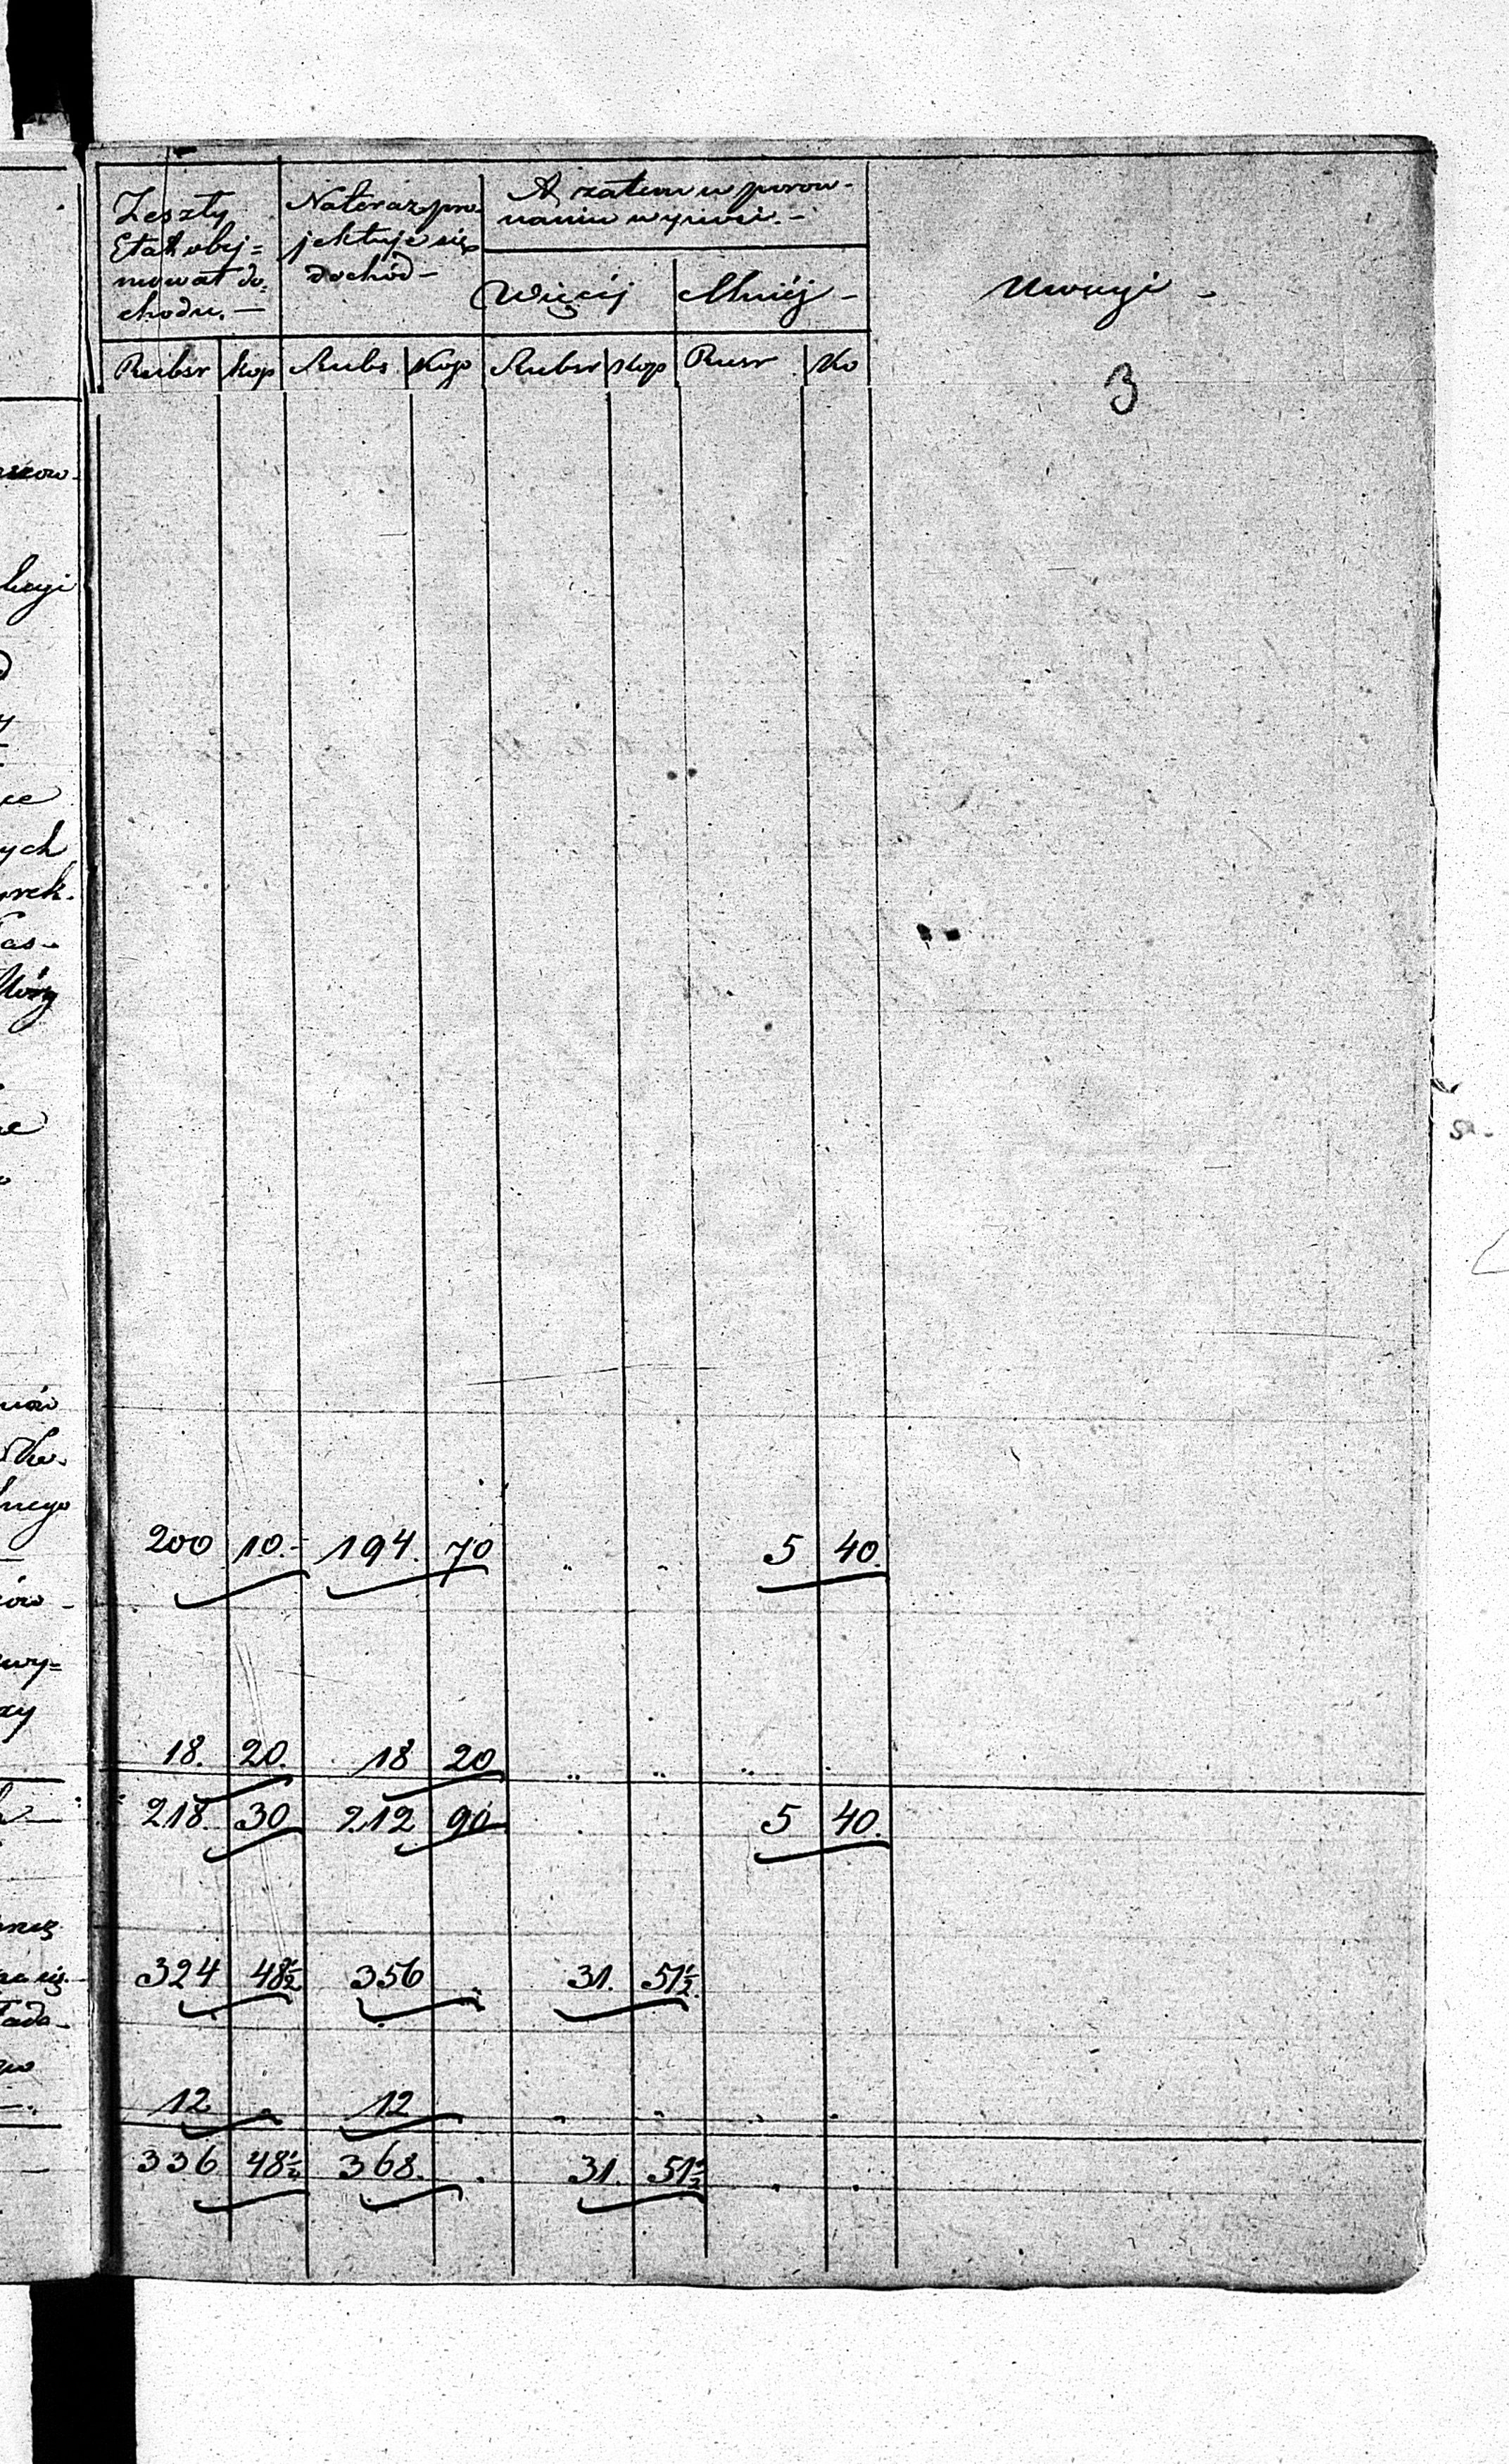 Zeszły
Etat obej=
mował do=
chodu. —
Nateraz pro-
jektuje się
dochód —
A zatem w porów-
naniu wynosi. —
Więcéj
Mniéj —
Uwagi —
Rubsr kop Rubs Kop Rubsr Kop Rusr Ko
3
200 10. — 194. 70 „ „ 5 40.
18. 20. 18 20 „ „ „ .
218 30 212 90 . „ 5 40.
324 48½ 356 „ 31. 51½.
12 „ 12 „ „ „ „
336 48½ 368. . 31. 51½ . .
ych
as-
wy=
zy